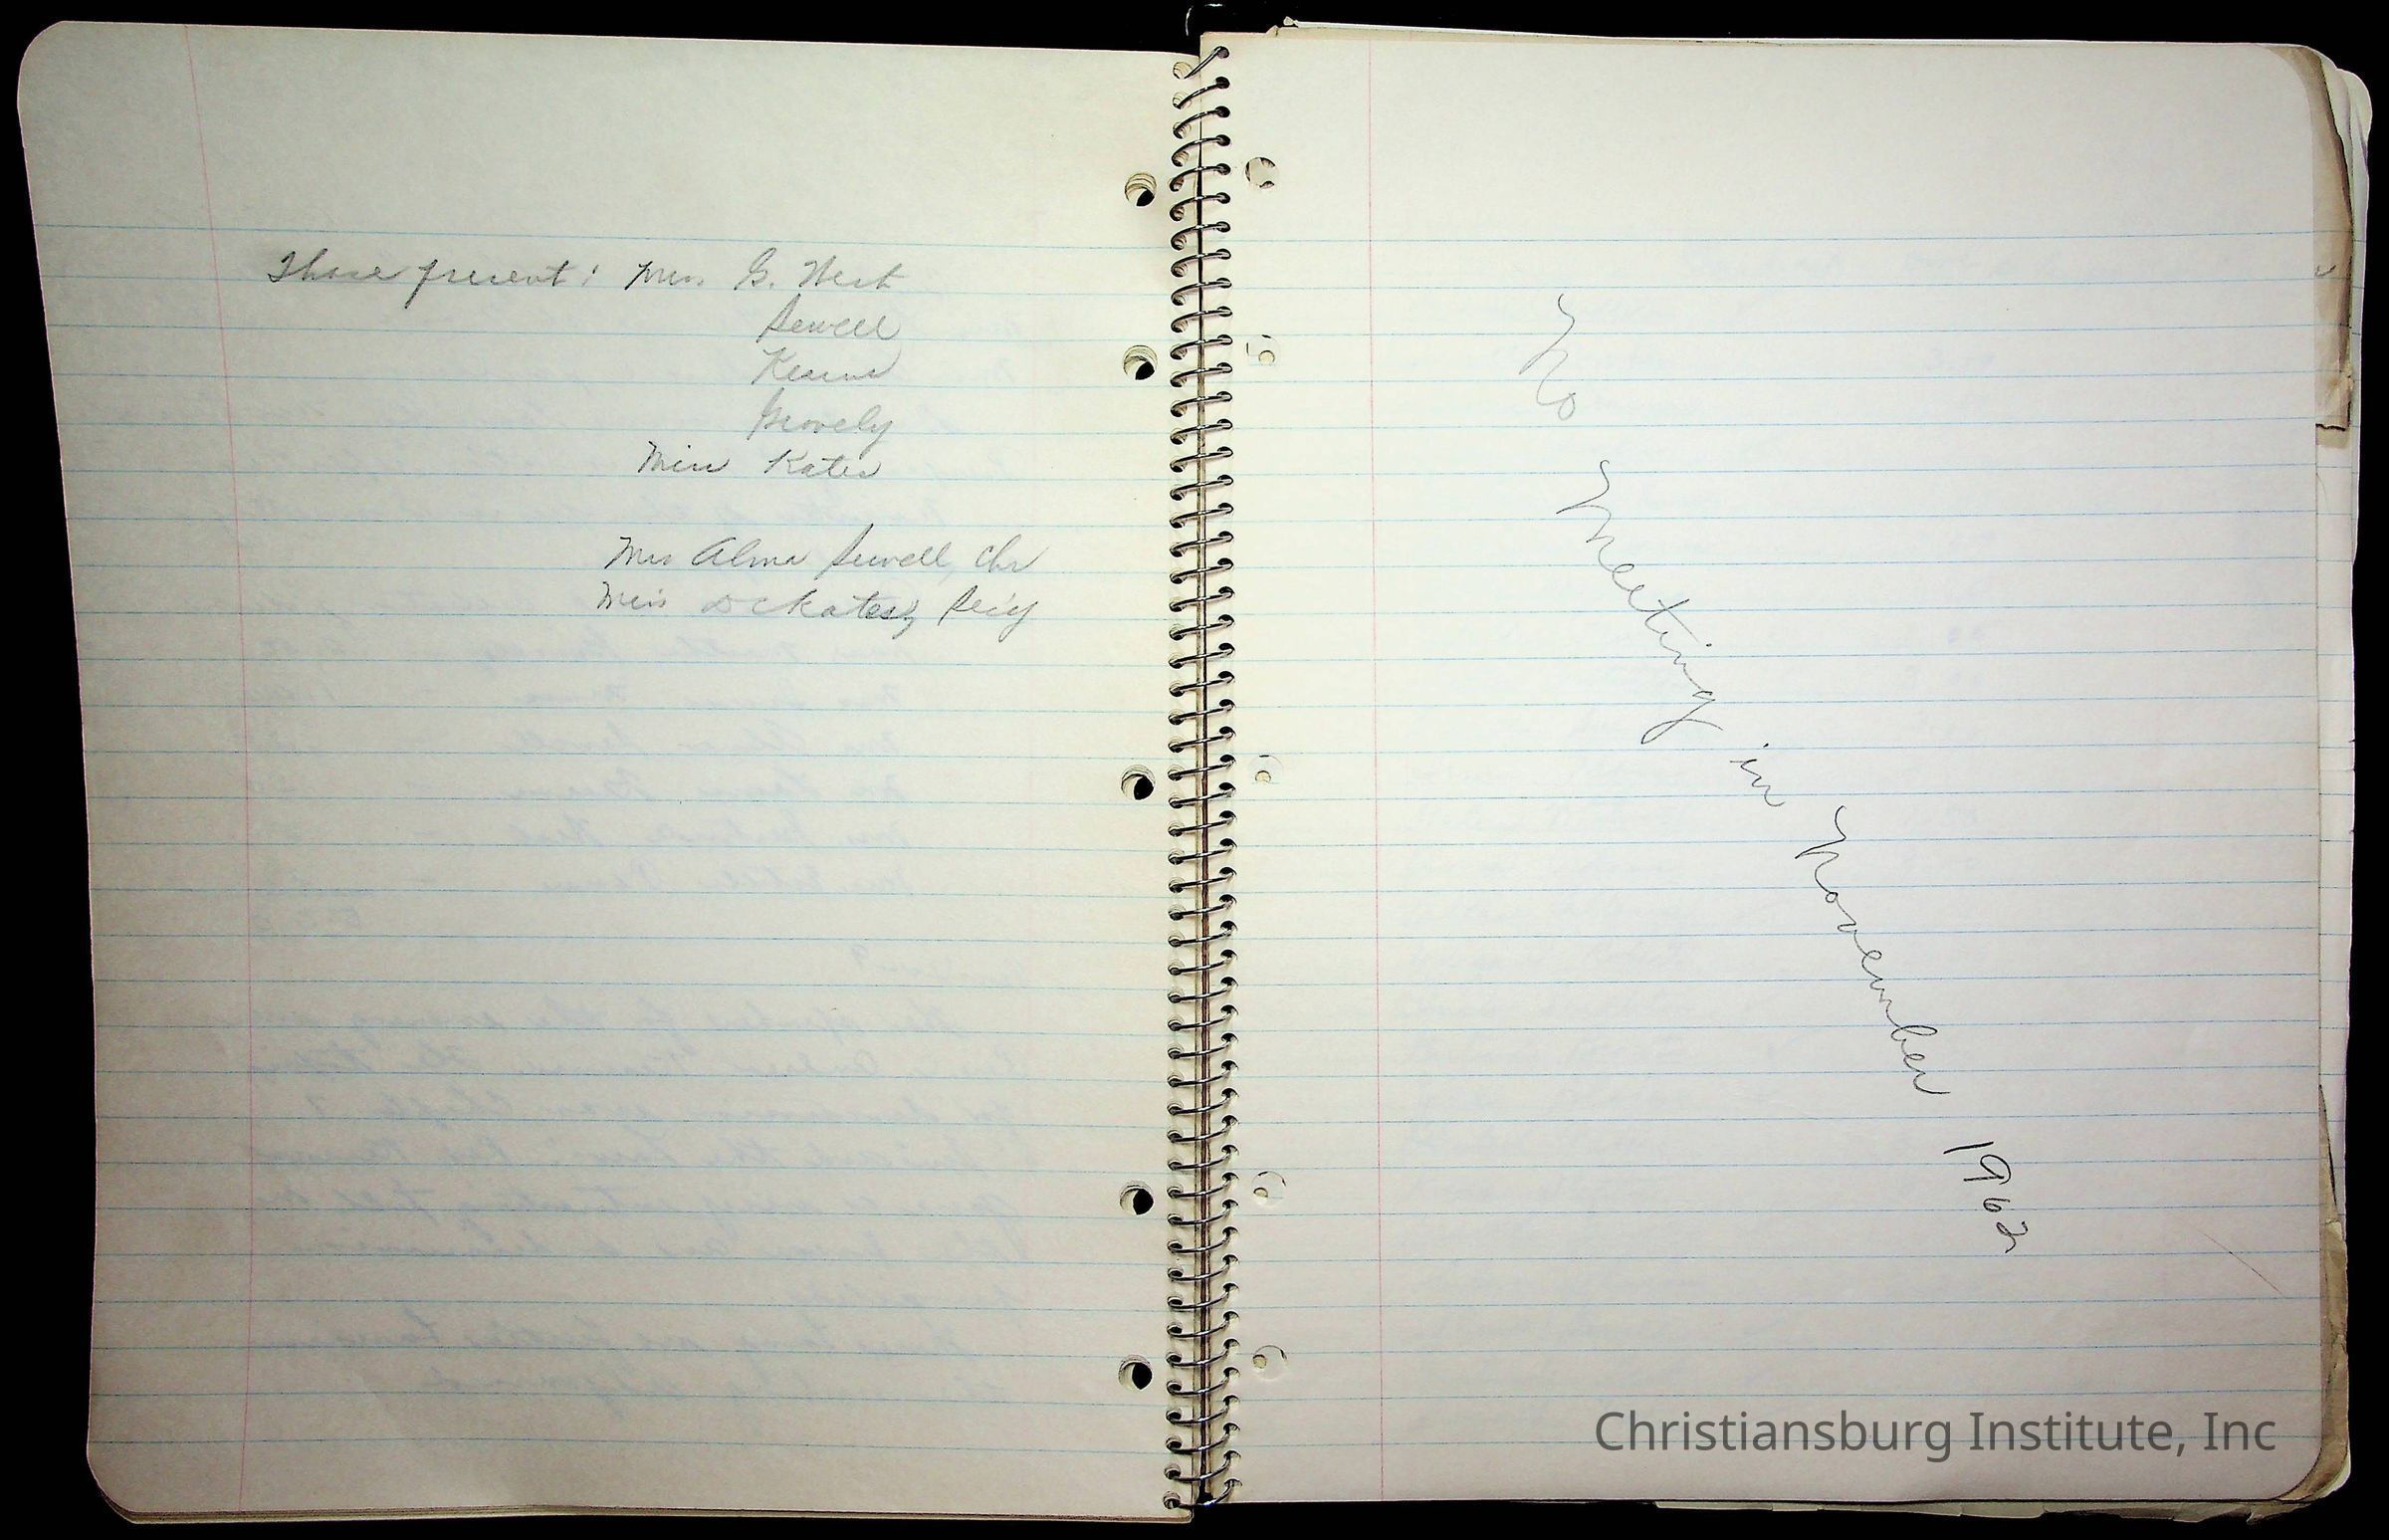 Those present: Mrs. G. West
Sewell
Kearns
Snovely
Miss Kates
Mrs Alma Sewell, Chr
Miss D C Kates, Sec'y
No Meeting in November 1962
Christiansburg Institute, Inc